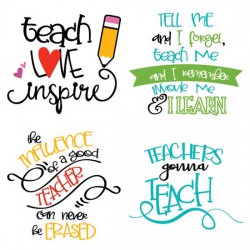 teach
LOVE
inspire
TELL ME
and I forget,
teach me
and I remember
involve me
& I LEARN
the
INFLUENCE
of a good
TEACHER
can never
be ERASED
TEACHERS
gonna
TEACH